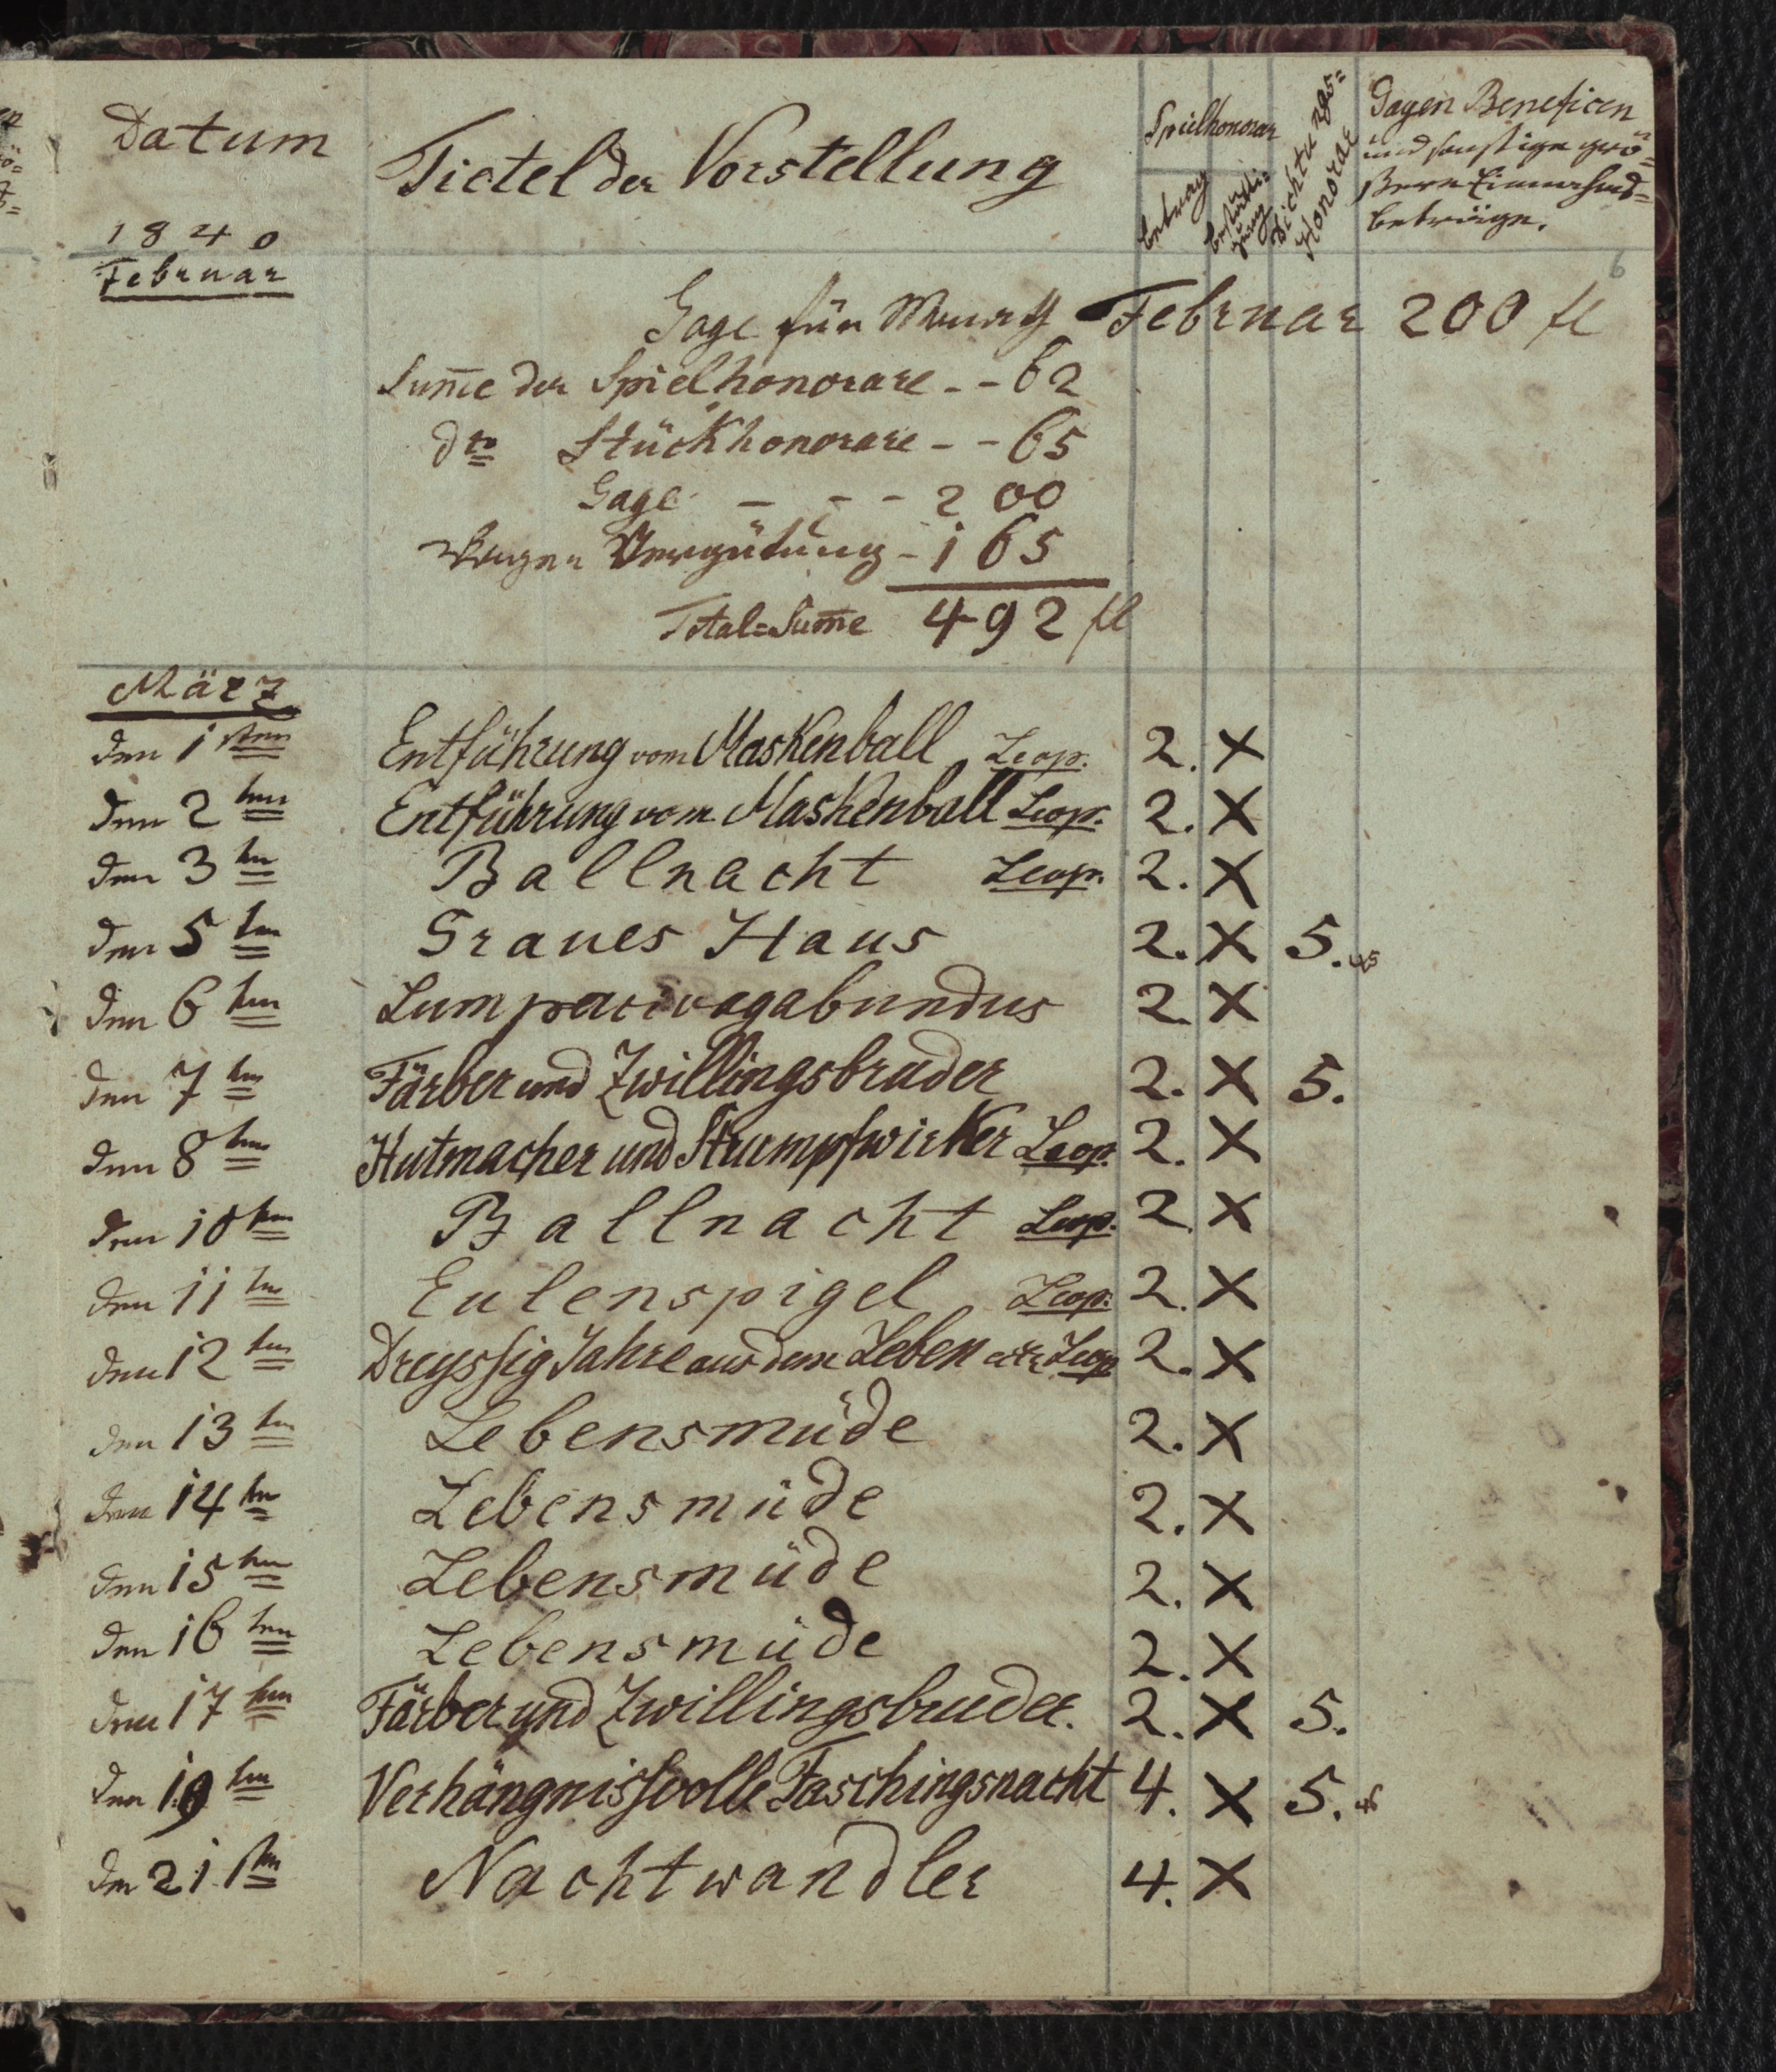 Datum
Tictel der Vorstellung
Spielhonorar
Betrag
Honorar
Gagen Beneficen
und sonstige grö=
ßere Einnahms=
beträge.
1840
Februar
6
Gage für Monath Februar 200 fl
Sum̅e der Spielhonorare - - 62
dto Stückhonorare - - 65
Gage - - - 200
Wagen Vergütung - 165
Total=Sum̅e 492 fl
März
den 1sten Entführung vom Maskenball Leop. 2. X
den 2ten Entführung vom Maskenball Leop. 2. X
den 3ten Ballnacht Leop. 2. X
den 5ten Graues Haus 2. X 5.
den 6ten Lumpacivagabundus 2. X
den 7ten Färber und Zwillingsbruder 2. X 5.
den 8ten Hutmacher und Strumpfwirker Leop. 2. X
den 10ten Ballnacht Leop. 2. X
den 11ten Eulenspigel Leop. 2. X
den 12ten Dreyssig Jahre aus dem Leben etc Leop 2. X
den 13ten Lebensmüde 2. X
den 14ten Lebensmüde 2. X
den 15ten Lebensmüde 2. X
den 16ten Lebensmüde 2. X
den 17ten Färber und Zwillingsbruder. 2. X 5.
den 19ten Verhängnissvolle Faschingsnacht 4. X 5.
den 21sten Nachtwandler 4. X